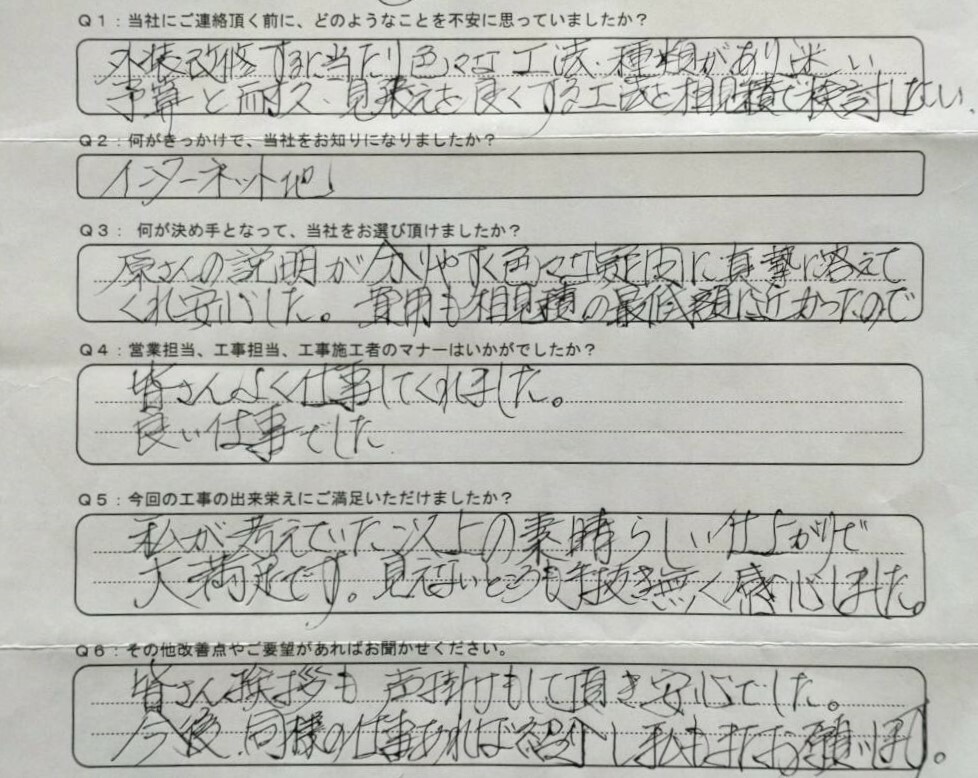 Q1：当社にご連絡頂く前に、どのようなことを不安に思っていましたか？
外装改修するに当たり色々な工法、種類があり迷い
予算と耐久、見栄えを良くする工法を相見積で検討したい
Q2：何がきっかけで、当社をお知りになりましたか？
インターネット他
Q3： 何が決め手となって、当社をお選び頂けましたか？
原さんの説明が分りやすく色々な質問に真摯に答えて
くれ安心した。費用も相見積の最低額に近かったので
Q4：営業担当、工事担当、工事施工者のマナーはいかがでしたか？
皆さんよく仕事してくれました。
良い仕事でした
Q5：今回の工事の出来栄えにご満足いただけましたか？
私が考えていた以上の素晴らしい仕上がりで
大満足です。見えないところも手抜き無く感心しました。
Q6：その他改善点やご要望があればお聞かせください。
皆さん挨拶も声掛けもして頂き安心でした。
今後、同様の仕事あれば紹介し私もまたお願いします。